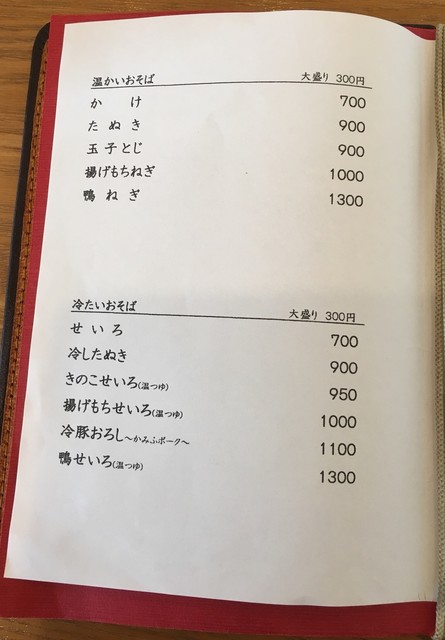 温かいおそば 大盛り 300円
かけ 700
たぬき 900
玉子とじ 900
揚げもちねぎ 1000
鴨ねぎ 1300
冷たいおそば 大盛り 300円
せいろ 700
冷したぬき 900
きのこせいろ(温つゆ) 950
揚げもちせいろ(温つゆ) 1000
冷豚おろし～かみふポーク～ 1100
鴨せいろ(温つゆ) 1300